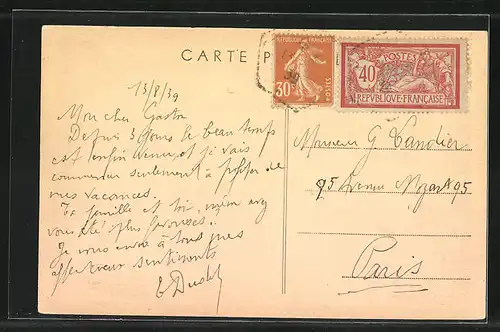 CARTE P
RÉPUBLIQUE FRANÇAISE
30c
POSTES
POSTES
40c
REPVBLIQVE FRANÇAISE
13/8/39
Mon cher Gaston
Depuis 3 jours le beau temps
est enfin venu et je vais
commencer seulement à profiter de
mes vacances.
Ta famille et toi, même avez
vous été plus favorisés.
Je vous envoie à tous mes
affectueux sentiments
Monsieur G
95 Avenue Mozart 95
Paris